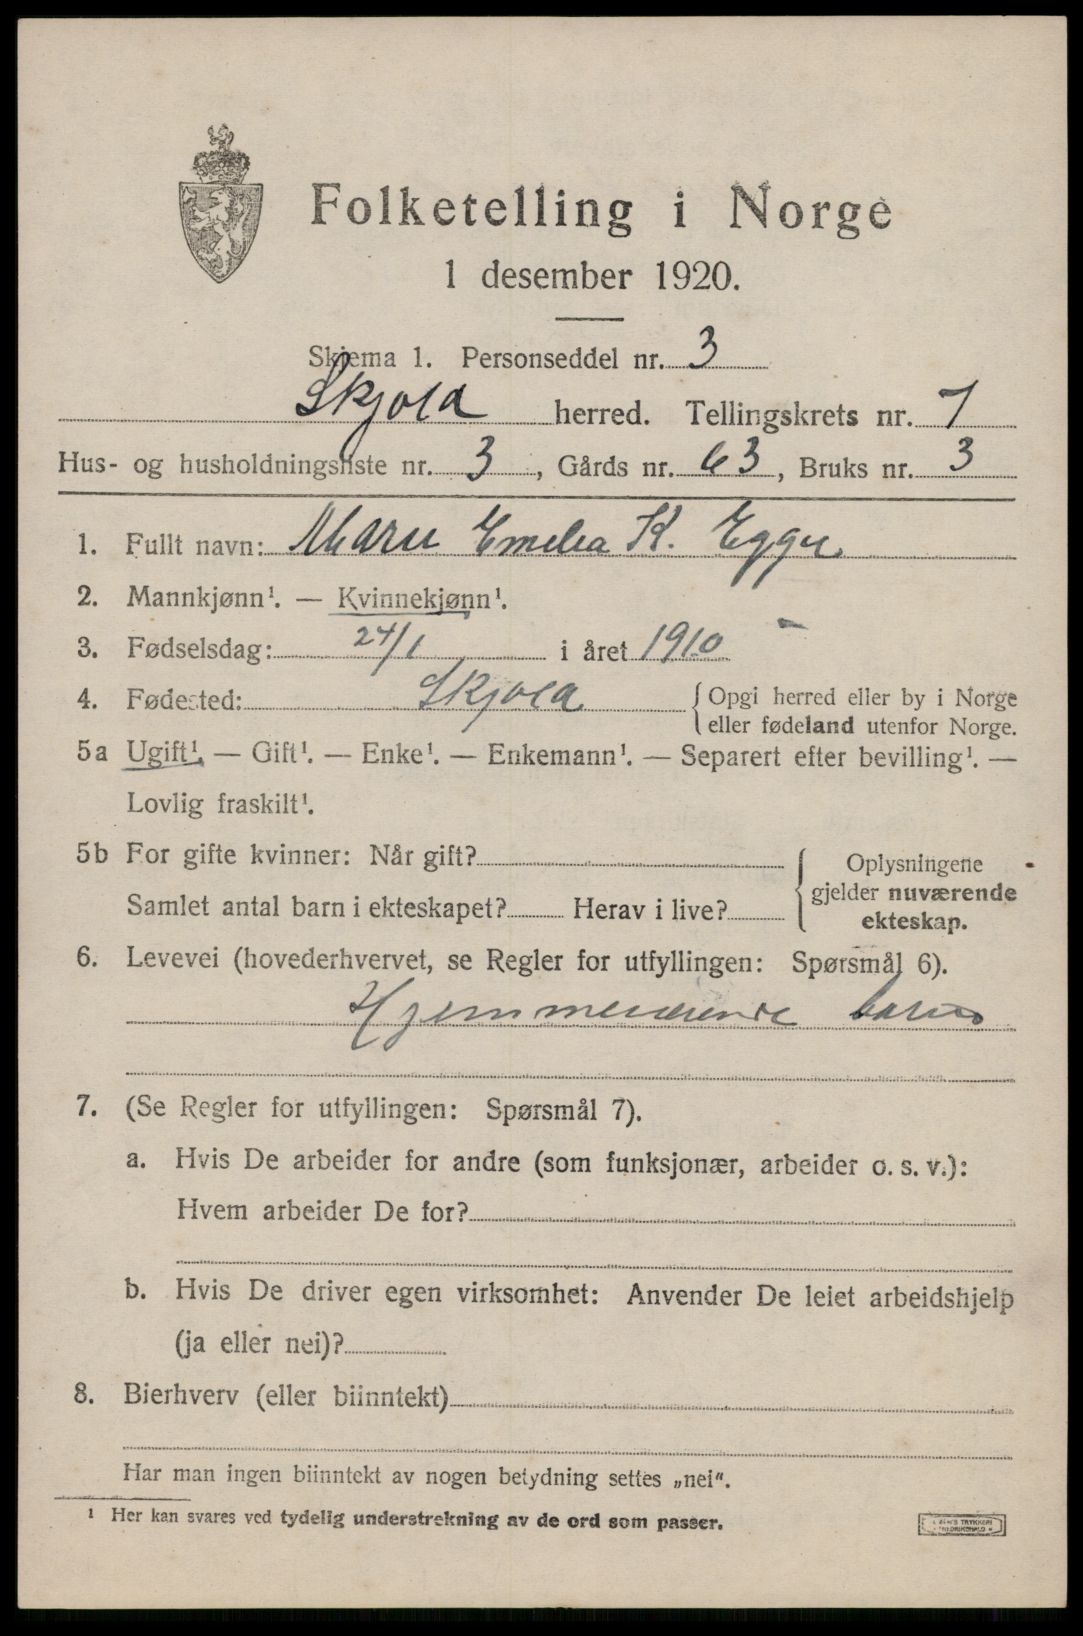 Folketelling i Norge
1 desember 1920.
Skjema 1. Personseddel nr. 3
Skjold herred. Tellingskrets nr. 7
Hus- og husholdningsliste nr. 3, Gårds nr. 63, Bruks nr. 3
1. Fullt navn: Marie Emelia K. Egge
2. Mannkjønn¹. — Kvinnekjønn¹.
3. Fødselsdag: 24/1 i året 1910
4. Fødested: Skjold { Opgi herred eller by i Norge
eller fødeland utenfor Norge.
5a Ugift¹. — Gift¹. — Enke¹. — Enkemann¹. — Separert efter bevilling¹. —
Lovlig fraskilt¹.
5b For gifte kvinner: Når gift?
Samlet antal barn i ekteskapet? Herav i live?
{ Oplysningene
gjelder nuværende
ekteskap.
6. Levevei (hovederhvervet, se Regler for utfyllingen: Spørsmål 6).
Hjemmeværende barn
7. (Se Regler for utfyllingen: Spørsmål 7).
a. Hvis De arbeider for andre (som funksjonær, arbeider o. s. v.):
Hvem arbeider De for?
b. Hvis De driver egen virksomhet: Anvender De leiet arbeidshjelp
(ja eller nei)?
8. Bierhverv (eller biinntekt)
Har man ingen biinntekt av nogen betydning settes „nei“.
¹ Her kan svares ved tydelig understrekning av de ord som passer.
TRYKKERI